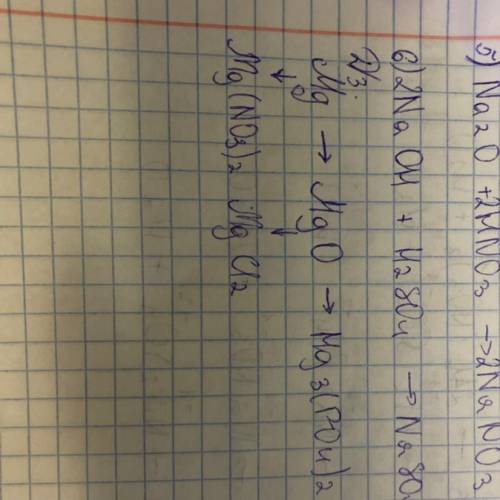 5) Na2O + 2HNO3 → 2NaNO3
6) 2NaOH + H2SO4 → Na2SO
Д/з.
Mg → MgO → Mg3(PO4)2
↓ ↓
Mg(NO3)2 MgCl2